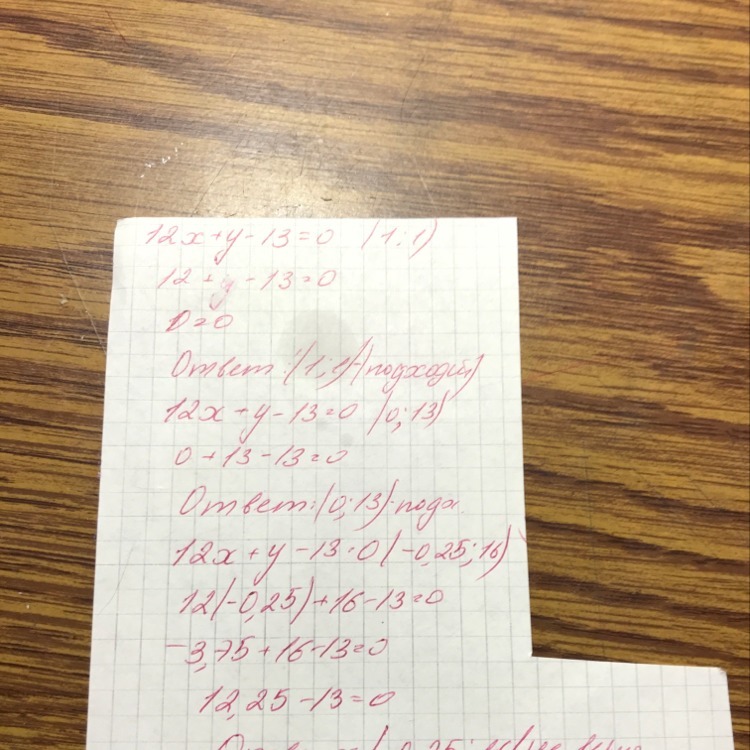 12x+y-13=0 (1;1)
12+y-13=0
0=0
Ответ:(1;1)-(подходит)
12x+y-13=0 (0;13)
0+13-13=0
Ответ:(0;13)-подх.
12x+y-13=0 (-0,25;16)
12(-0,25)+16-13=0
-3,75+16-13=0
12,25-13=0